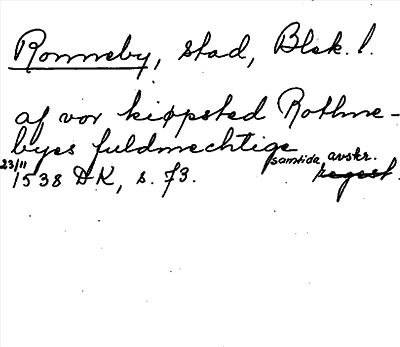 Ronneby, stad, Blek. l.
af vor kiøpsted Rothne-
byes fuldmechtige
23/11 samtida avskr.
1538 DK, s. 73. regest.